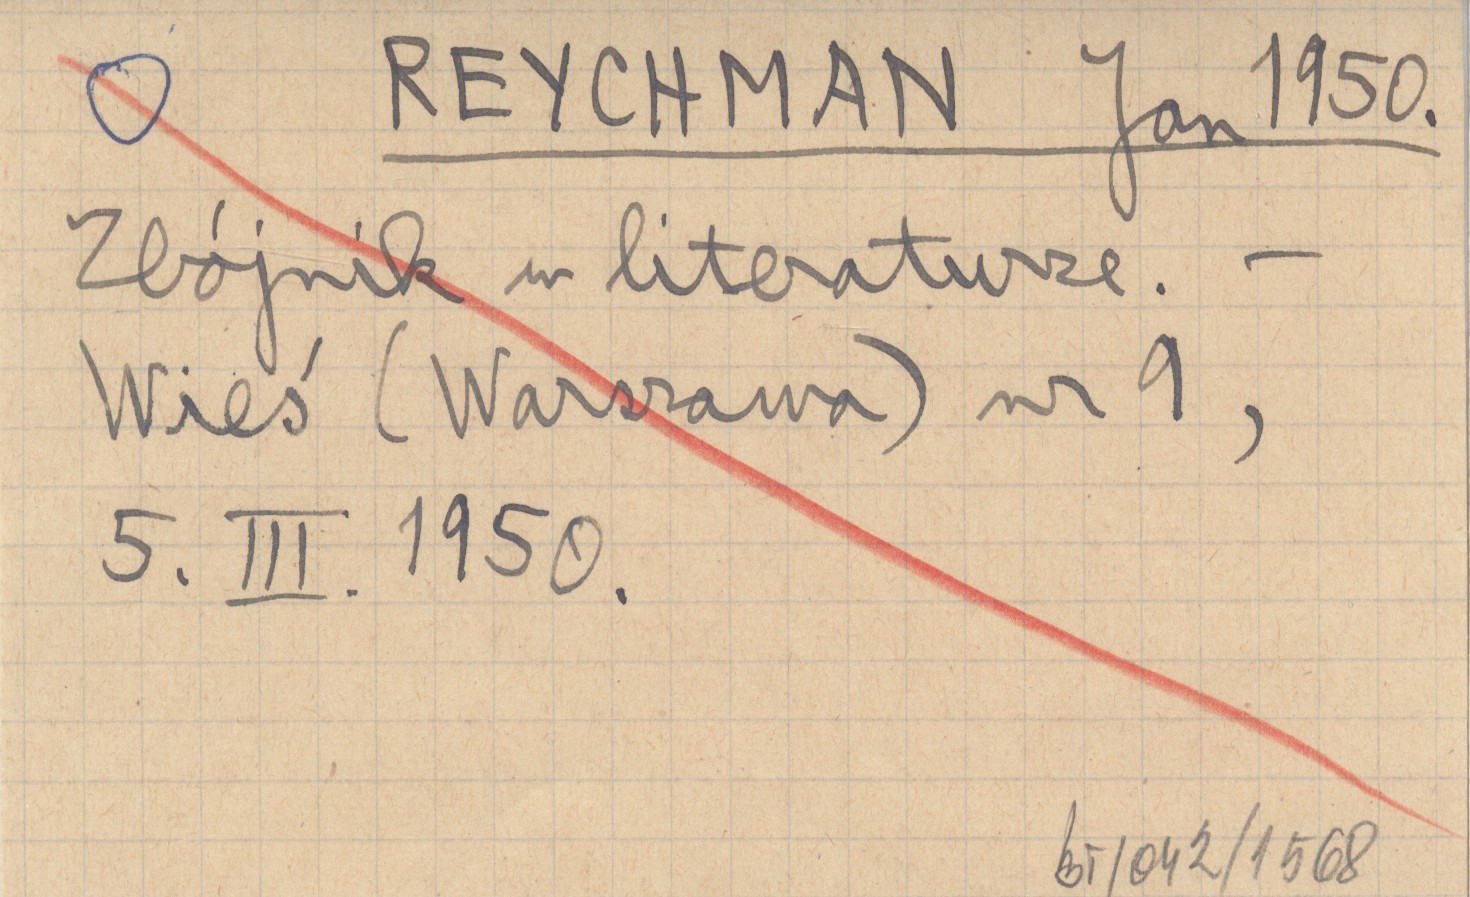 REYCHMAN Jan 1950.
Zbójnik w literaturze. –
Wieś (Warszawa) nr 9,
5. III. 1950.
bt/042/1568